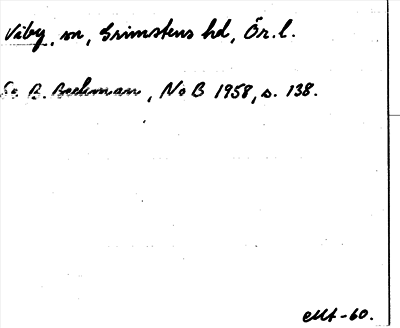 Viby, sn, Grimstens hd, Ör. l.
Se B. Beckman, NoB 1958, s. 138.
-60.